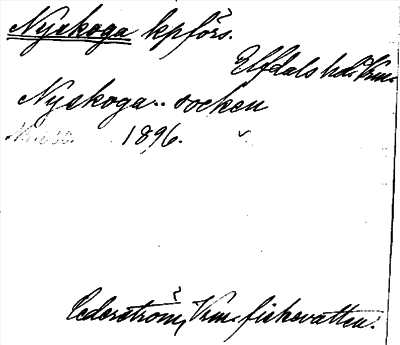 Nyskoga kpförs.
Elfdals hd. Vrm.
Nyskoga.. socken
1896.
Cederström, Vrm. fiskevatten.